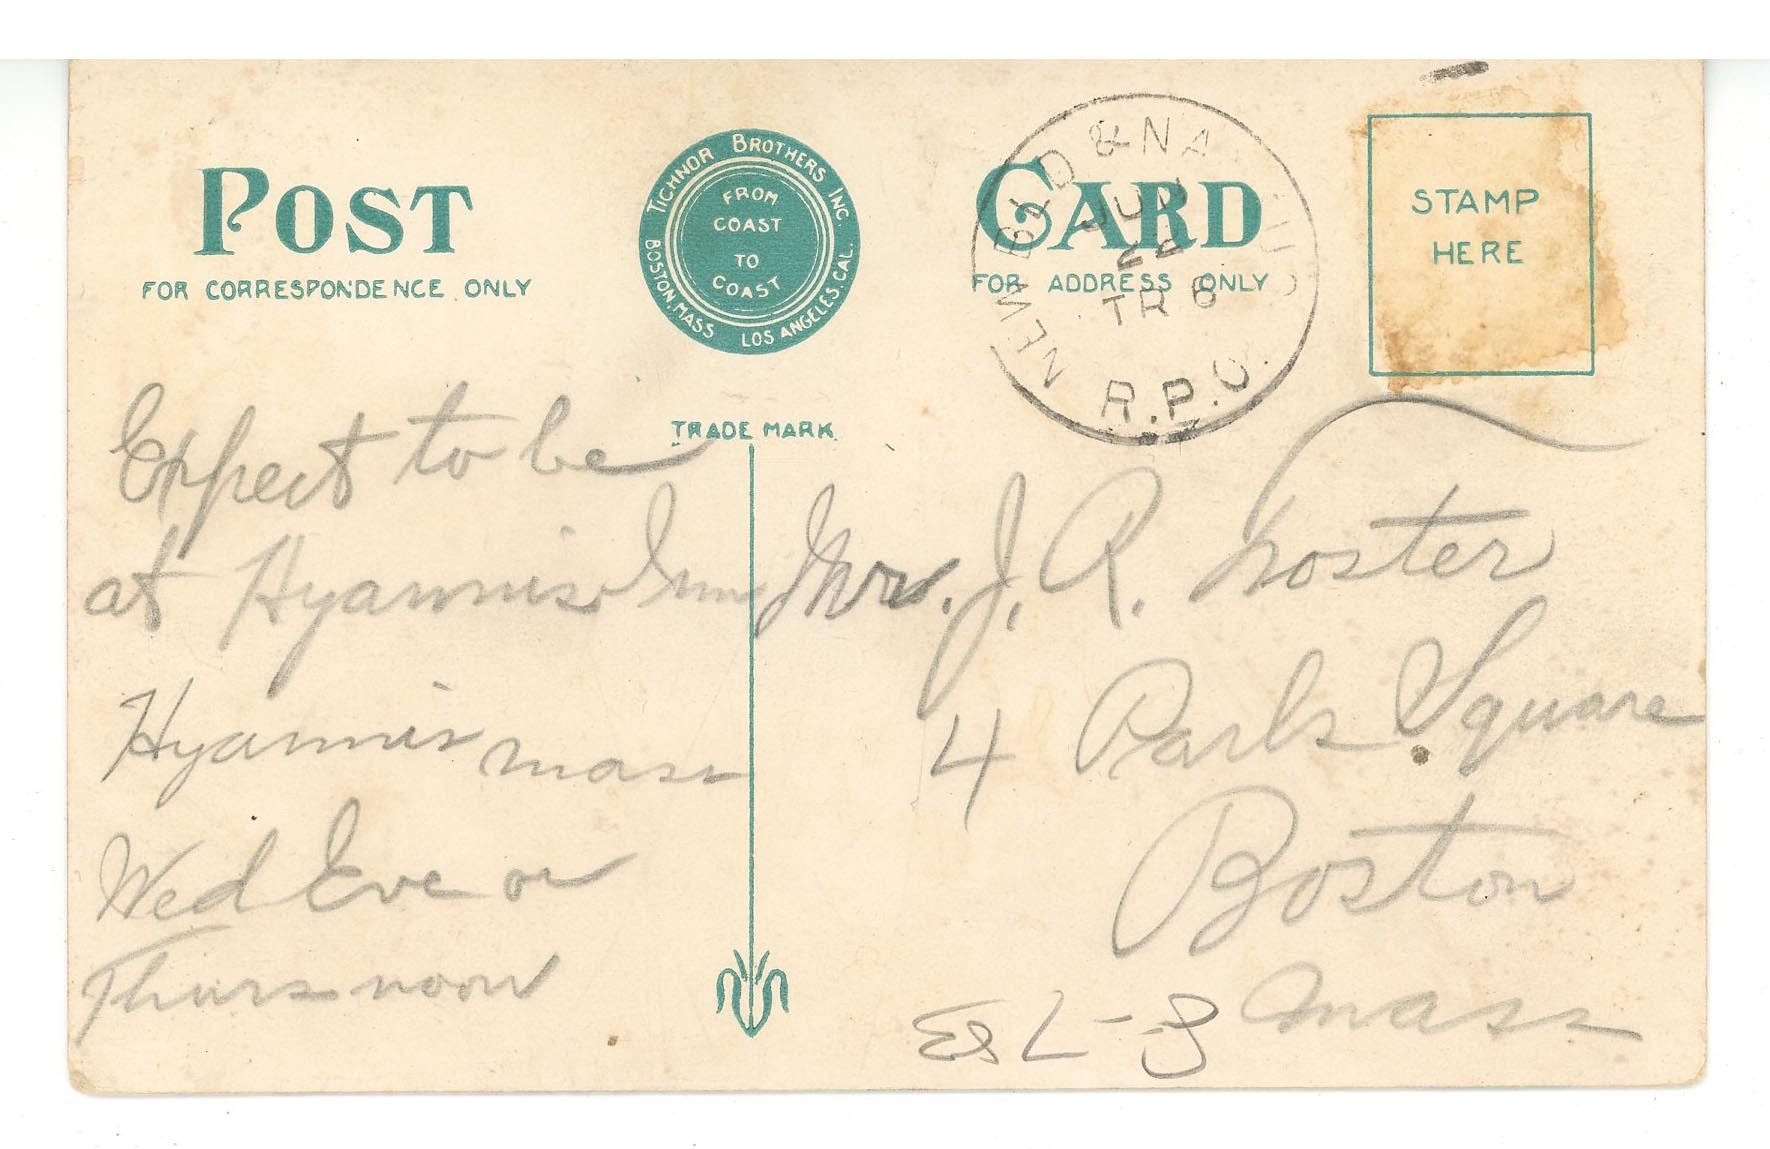 POST CARD
FOR CORRESPONDENCE ONLY
FOR ADDRESS ONLY
TICHNOR BROTHERS INC.
BOSTON, MASS. LOS ANGELES, CAL.
FROM
COAST
TO
COAST
TRADE MARK
STAMP
HERE
NEW B'F'D & NA
JUN
22
TR 6
R.P.O.
Expect to be
at Hyannis Inn
Hyannis Mass
Wed Eve or
Thurs noon
Mrs. J. R. Foster
4 Park Square
Boston
Mass